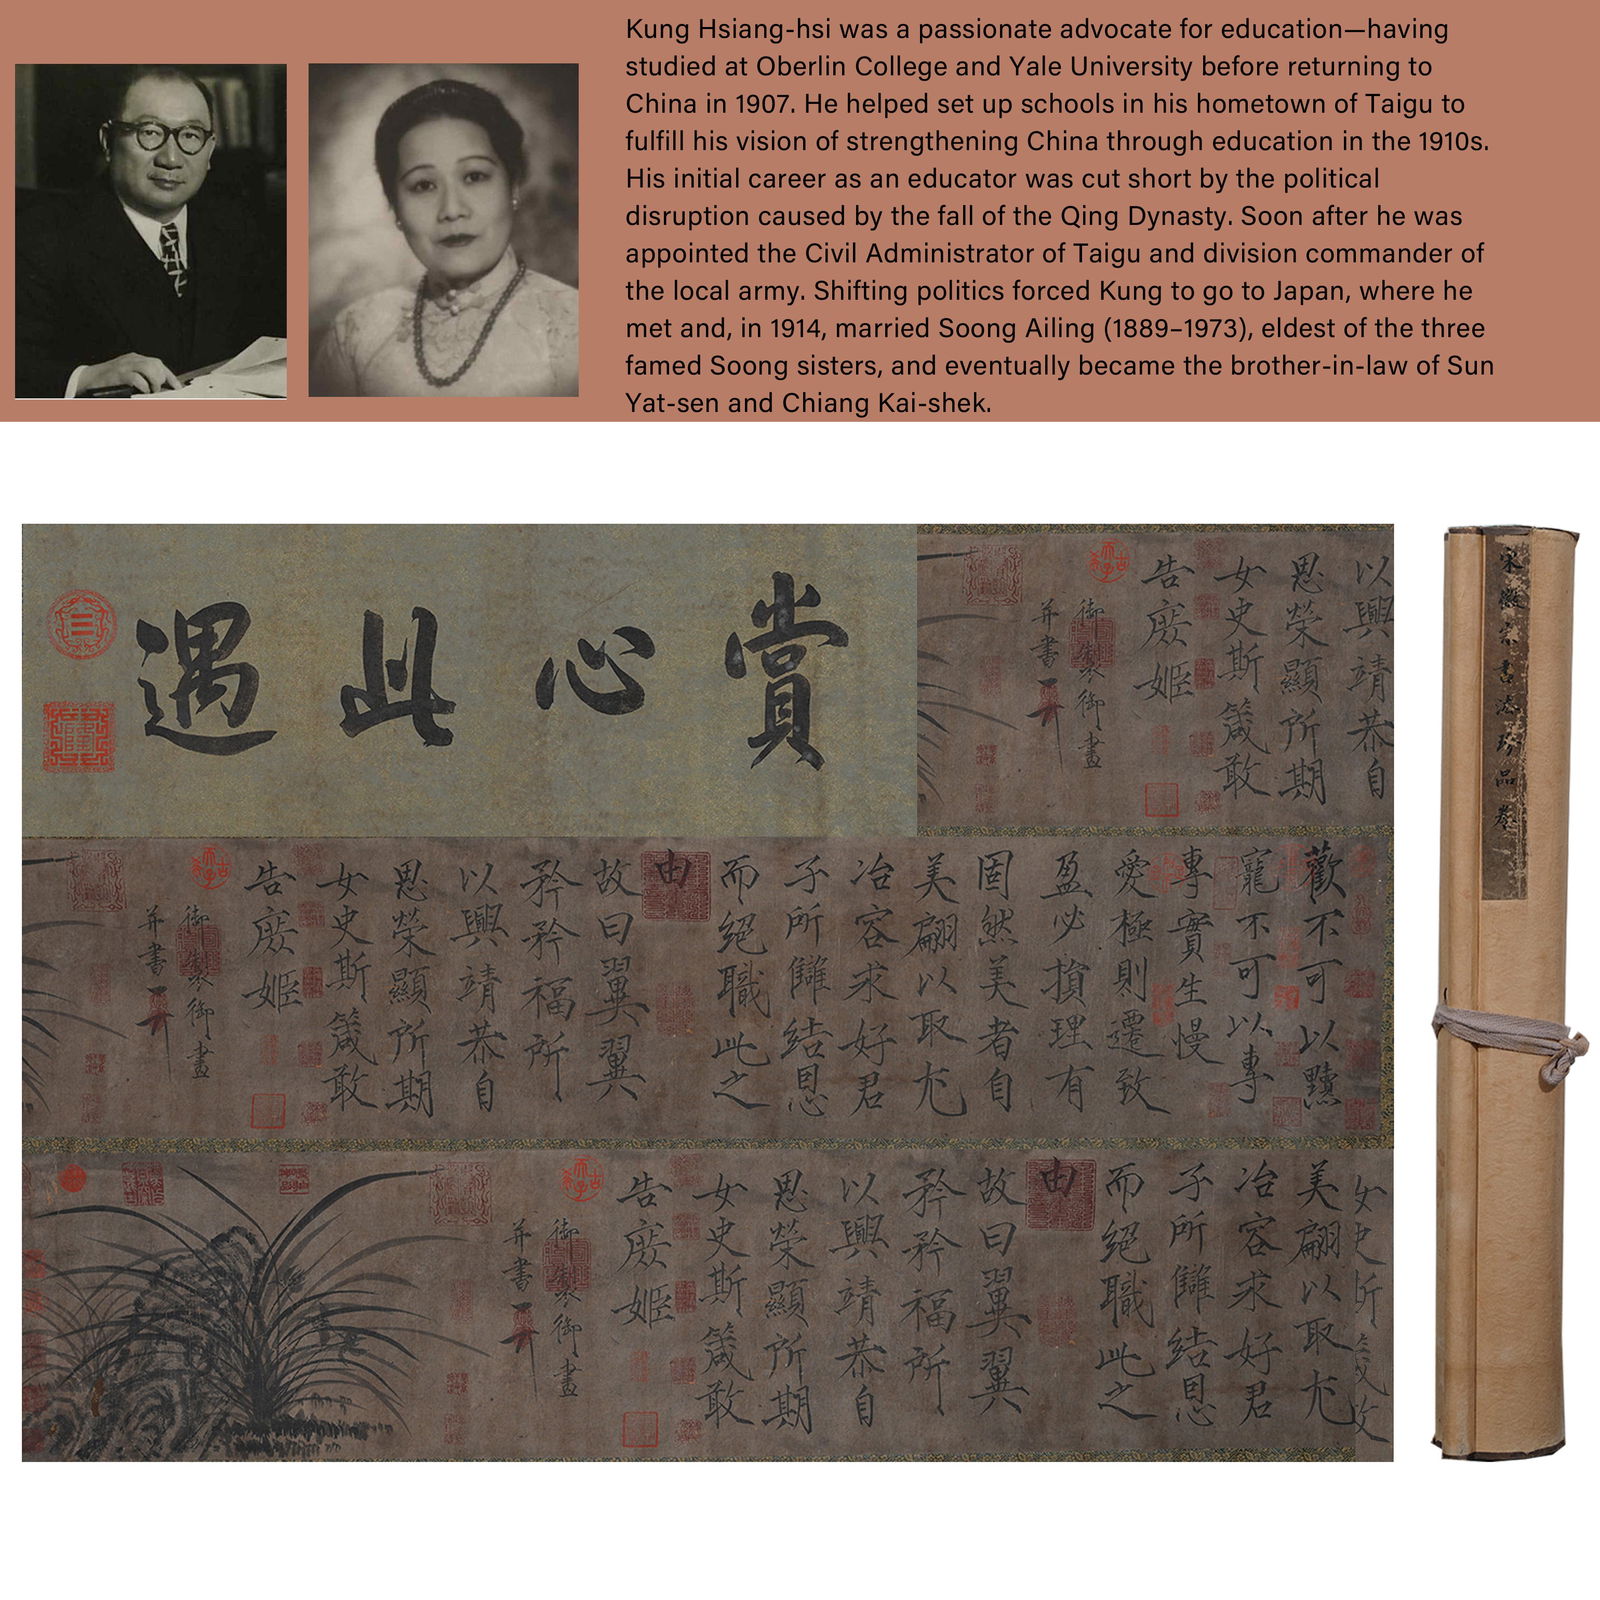 Kung Hsiang-hsi was a passionate advocate for education—having
studied at Oberlin College and Yale University before returning to
China in 1907. He helped set up schools in his hometown of Taigu to
fulfill his vision of strengthening China through education in the 1910s.
His initial career as an educator was cut short by the political
disruption caused by the fall of the Qing Dynasty. Soon after he was
appointed the Civil Administrator of Taigu and division commander of
the local army. Shifting politics forced Kung to go to Japan, where he
met and, in 1914, married Soong Ailing (1889–1973), eldest of the three
famed Soong sisters, and eventually became the brother-in-law of Sun
Yat-sen and Chiang Kai-shek.
賞心此遇
以興靖恭自
思榮顯所期
女史斯箴敢
告庶姬
御製御畫
并書
歡不可以黷
寵不可以專
專實生慢
愛極則遷致
盈必損理有
固然美者自
美翩以取尤
冶容求好君
子所讎結恩
而絕職此之
由
故曰翼翼
矜矜福所
以興靖恭自
思榮顯所期
女史斯箴敢
告庶姬
御製御畫
并書
美翩以取尤
冶容求好君
子所讎結恩
而絕職此之
由
故曰翼翼
矜矜福所
以興靖恭自
思榮顯所期
女史斯箴敢
告庶姬
御製御畫
并書
宋徽宗書法珍品卷